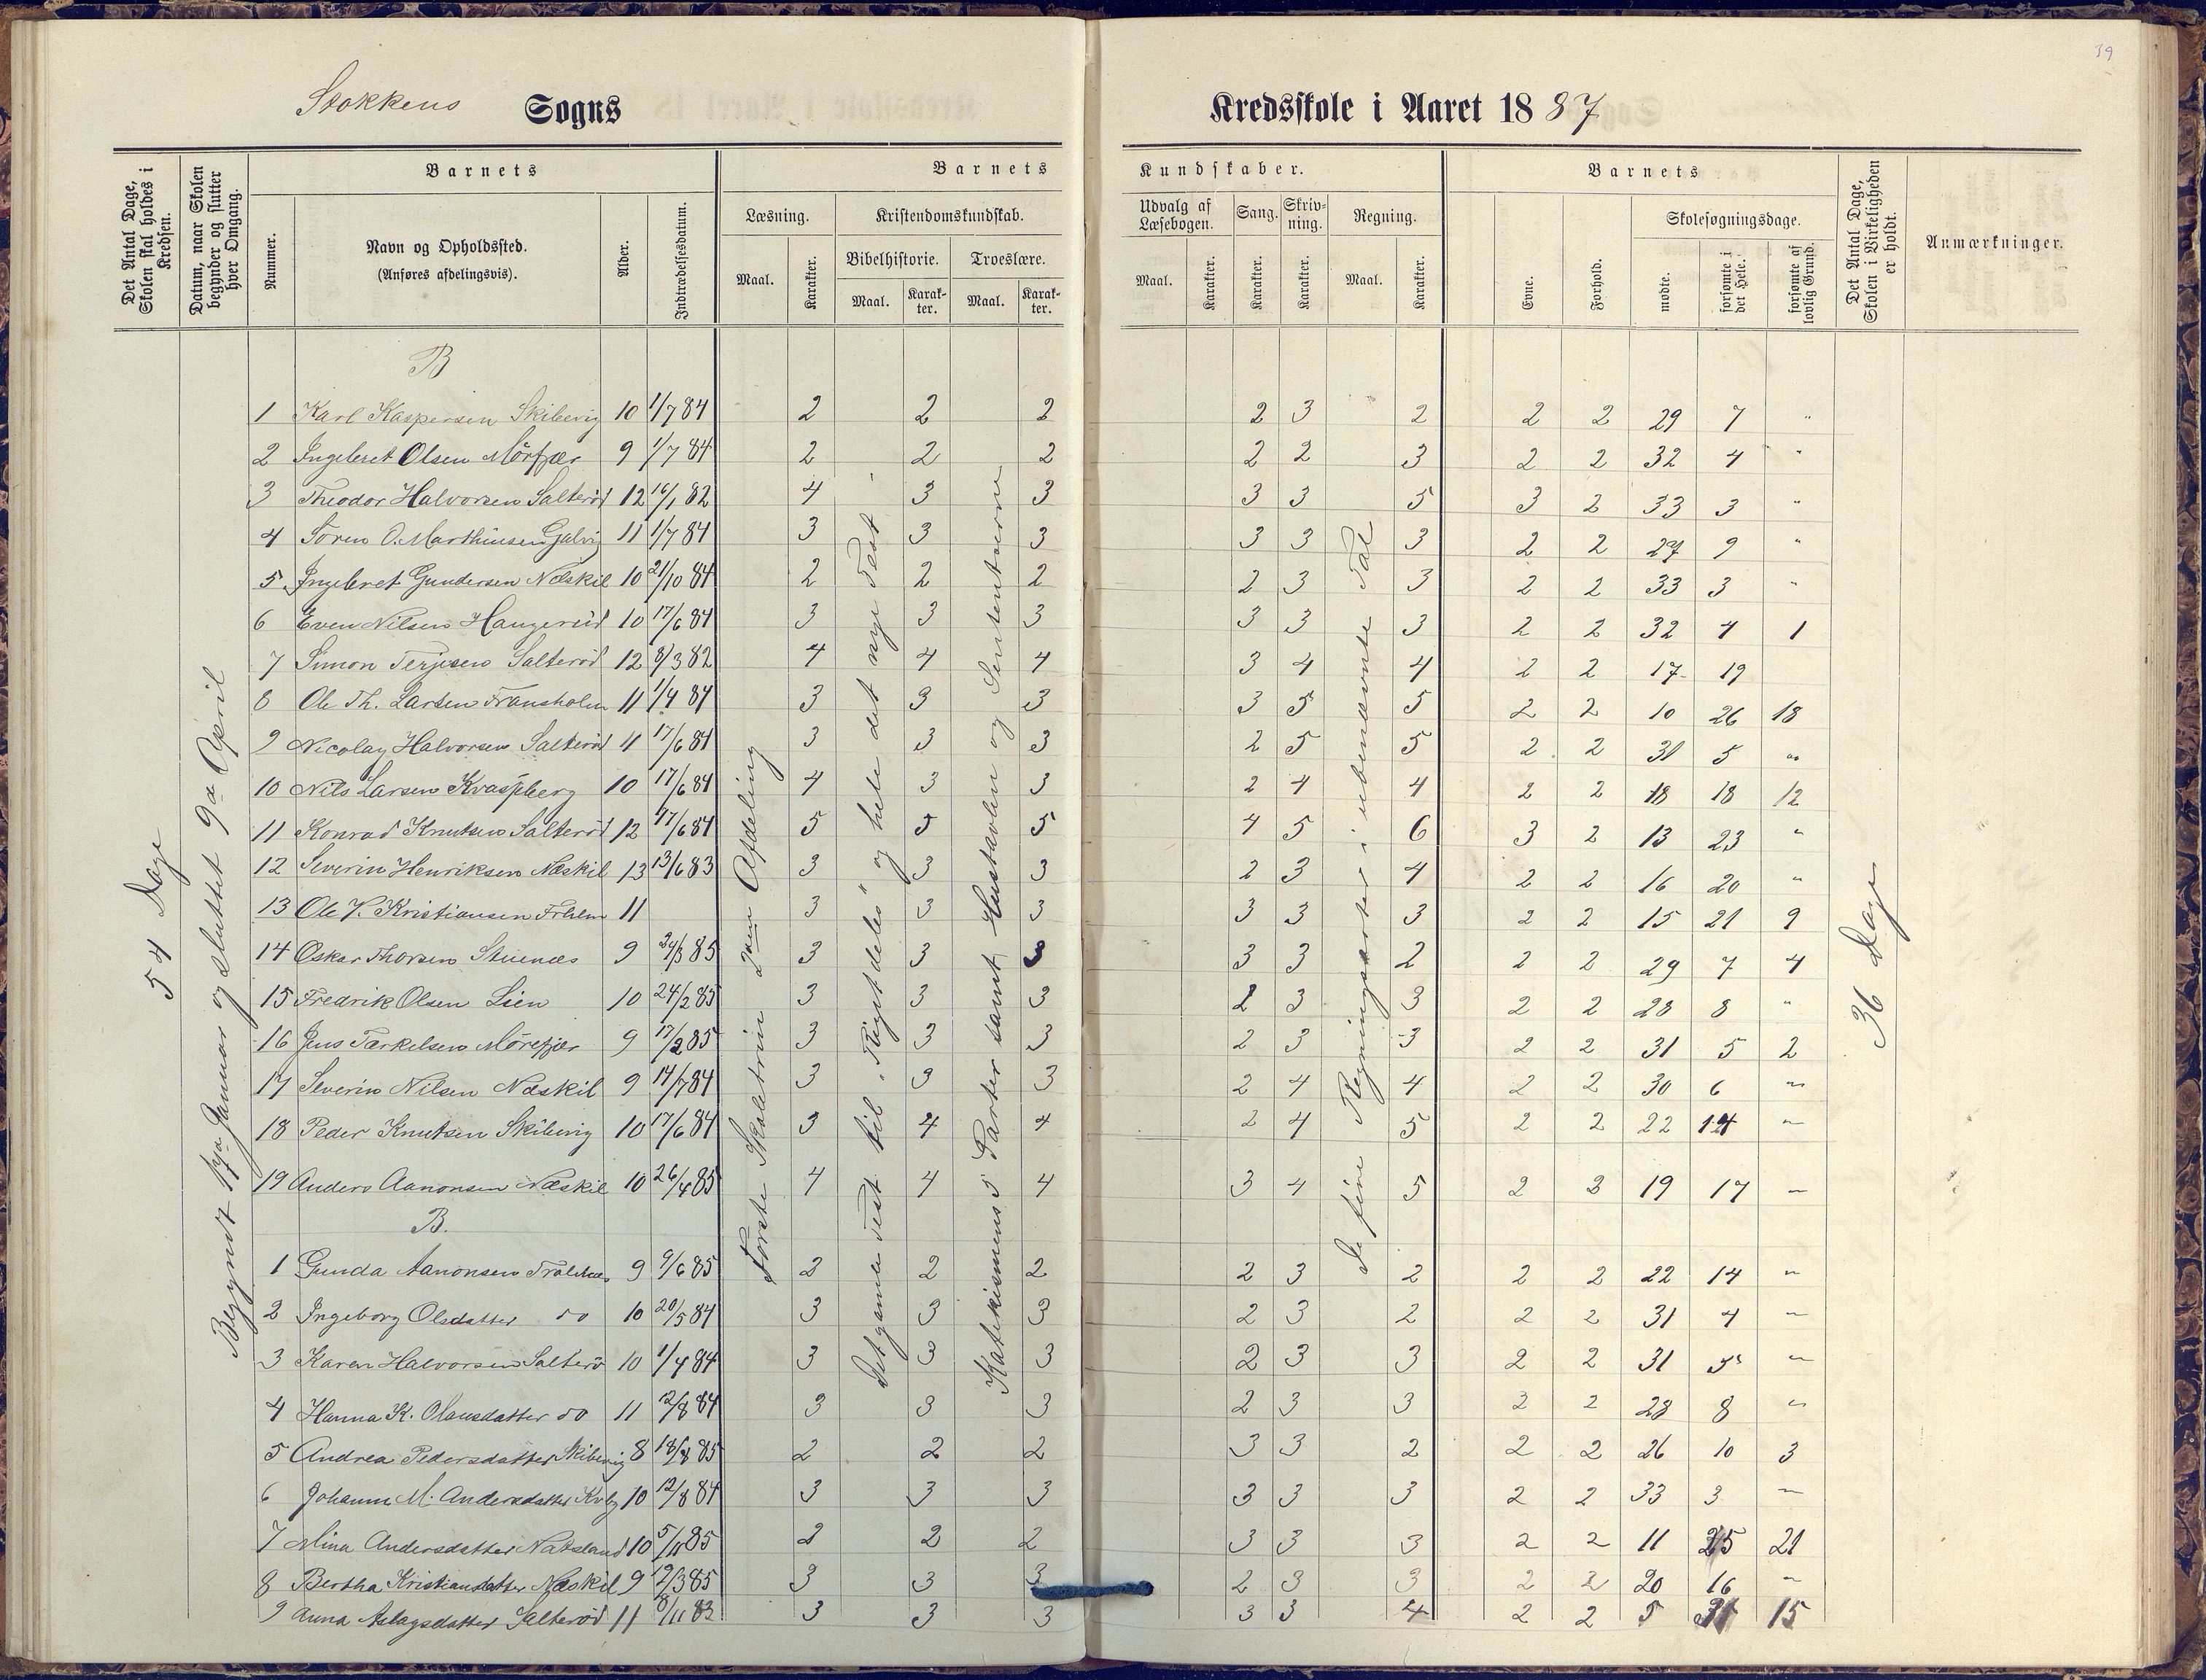 39
Stokkens Sogns Kredsskole i Aaret 1887
Det Antal Dage, Skolen skal holdes i Kredsen.
Datum, naar Skolen begynder og slutter hver Omgang.
Barnets
Nummer.
Navn og Opholdssted.
(Anføres afdelingsvis).
Alder.
Indtrædelsesdatum.
Barnets Kundskaber.
Læsning.
Kristendomskundskab.
Bibelhistorie.
Troeslære.
Udvalg af Læsebogen.
Sang.
Skrivning.
Regning.
Maal. Karakter. Maal. Karakter. Maal. Karakter. Maal. Karakter. Karakter. Karakter. Maal. Karakter.
Barnets
Evne.
Forhold.
Skolesøgningsdage.
mødte.
forsømte i det Hele.
forsømte af lovlig Grund.
Det Antal Dage, Skolen i Virkeligheden er holdt.
Anmærkninger.
54 Dage
Begyndt 17de Januar og sluttet 9de April
Første Skoletrin 2den Afdeling
Det gamle Test til "Rigets deles" og hele det nye Test
Katekismens 5 Parter samt Hustavlen og Sententserne
De fire Regningsarter i ubenævnte Tal
36 Dage
B
1 Karl Kaspersen Skibevig 10 1/7 84 2 2 2 2 3 2 2 2 29 7 "
2 Ingebret Olsen Mörfjær 9 1/7 84 2 2 2 2 2 3 2 2 32 4 "
3 Theodor Halvorsen Salteröd 12 16/1 82 4 3 3 3 3 5 3 2 33 3 "
4 Sören O. Marthinsen Galvig 11 1/7 84 3 3 3 3 3 3 2 2 27 9 "
5 Ingebret Gundersen Næskil 10 21/10 84 2 2 2 2 3 3 2 2 33 3 "
6 Even Nilsen Haugeröd 10 17/6 84 3 3 3 3 3 3 2 2 32 4 1
7 Simon Terjesen Salteröd 12 8/3 82 4 4 4 3 4 4 2 2 17 19
8 Ole Th. Larsen Fransholm 11 1/4 84 3 3 3 3 5 5 2 2 10 26 18
9 Nicolay Halvorsen Salteröd 11 17/6 84 3 3 3 2 5 5 2 2 31 5 "
10 Nils Larsen Kvaspberg 10 17/6 84 4 3 3 2 4 4 2 2 18 18 12
11 Konrad Knutsen Salteröd 12 17/6 84 5 5 5 4 5 6 3 2 13 23 "
12 Severin Henriksen Næskil 13 13/6 83 3 3 3 2 3 4 2 2 16 20 "
13 Ole V. Kristiansen 11 3 3 3 3 3 3 2 2 15 21 9
14 Oskar Thorsen Stuenæs 9 24/3 85 3 3 3 3 3 2 2 2 29 7 4
15 Fredrik Olsen Lien 10 24/2 85 3 3 3 2 3 3 2 2 28 8 "
16 Jens Tærkelsen Mörefjær 9 17/2 85 3 3 3 2 3 3 2 2 31 5 2
17 Severin Nilsen Næskil 9 14/7 84 3 3 3 2 4 4 2 2 30 6 "
18 Peder Knutsen Skibevig 10 17/6 84 3 4 4 2 4 5 2 2 22 14 "
19 Anders Aanonsen Næskil 10 26/4 85 4 4 4 3 4 5 2 3 19 17 "
B.
1 Gunda Aanonsen 9 9/6 85 2 2 2 2 3 2 2 2 22 14 "
2 Ingeborg Olsdatter do 10 20/5 84 3 3 3 2 3 2 2 2 31 4 "
3 Karen Halvorsen Salterö 10 1/4 84 3 3 3 2 3 3 2 2 31 5 "
4 Hanna K. Olausdatter do 11 12/8 84 3 3 3 2 3 3 2 2 28 8 "
5 Andrea Pedersdatter Skibevig 8 18/8 85 2 2 2 3 3 2 2 2 26 10 3
6 Johanne M. Andersdatter 10 12/8 84 3 3 3 3 3 3 2 2 33 3 "
7 Mina Andersdatter Natsland 10 5/11 85 2 2 2 3 3 3 2 2 11 25 21
8 Bertha Kristiansdatter Næskil 9 12/3 85 3 3 3 2 3 3 2 2 20 16 "
9 Anna Aslagsdatter Salteröd 11 8/11 83 3 3 3 3 3 4 2 2 5 31 15